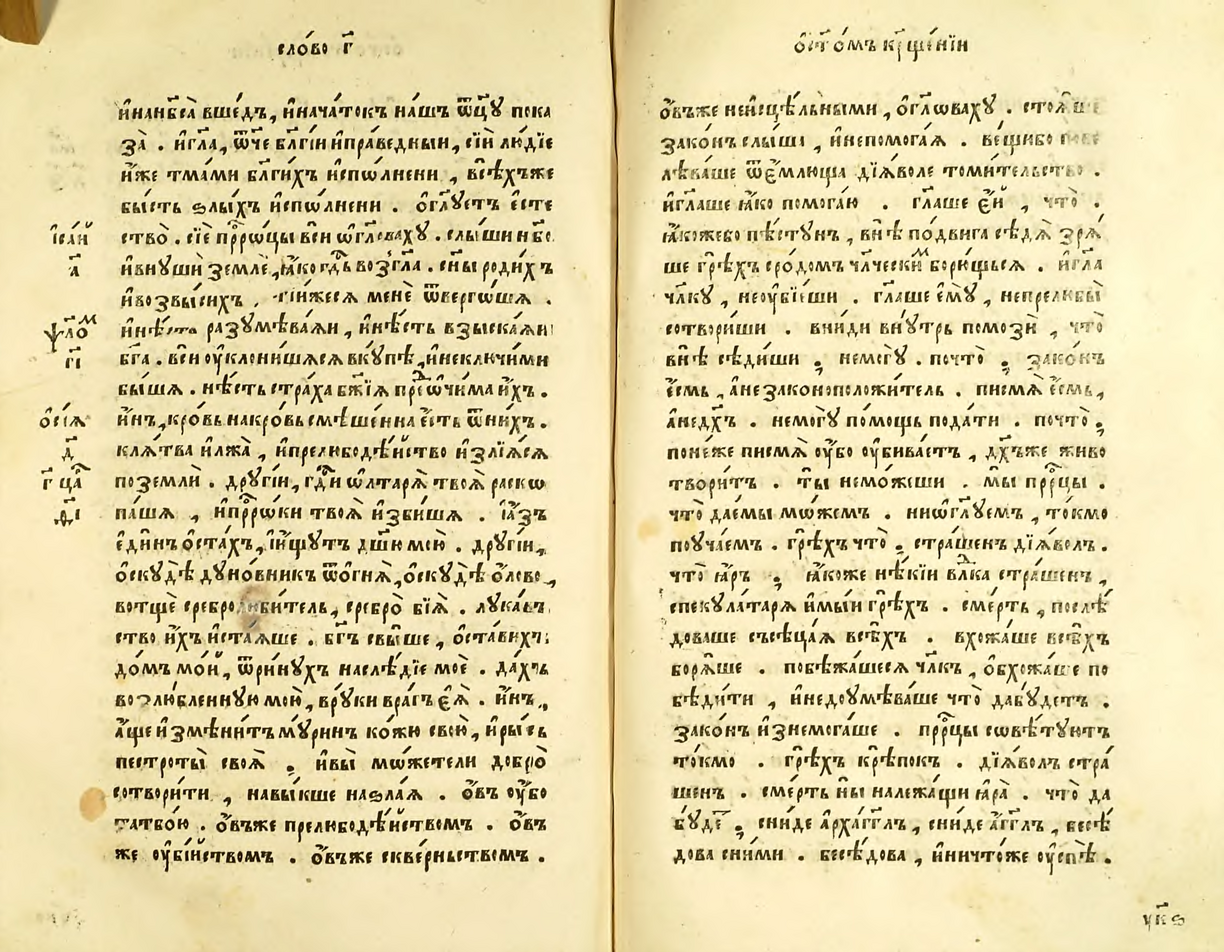 сло́во г҃
и҆нанб҃са̀ вше́дъ, и҆нача́токъ на́шъ ѿц҃ꙋ пока
за̀ . и҆гл҃а, ѿ́че бл҃гі́и и҆пра́ведныи, сїѝ лю́дїе
и҆́же тма́ми бл҃ги́хъ и҆спо́лнени , всѣ́хъже
бы́сть ѕлы́хъ и҆спо́лнени . ѻ҆гл҃ꙋетъ є҆сте
ство̀ . сїѐ прⷪ҇ро́цы всѝ ѡ҆гл҃оваху . слы́ши нб҃о
і҆са́й
и҆внꙋшѝ землѐ, ꙗ҆́ко гдⷭ҇ь возгл҃а . сн҃ы роди́хъ
а҃
и҆возвы́сихъ . ті́и жеся менѐ ѿверго́шѧ .
и҆нѣ́сть разꙋмѣва́ѧи , и҆нѣ́сть взыска́ѧи
ѱало́ᵐ
бг҃а . всѝ ᲂу҆клони́шѧсѧ вкꙋ́пѣ, и҆неключи́ми
г҃і
бы́шѧ . нѣ́сть стра́ха бж҃їѧ преⷣ ѻ҆чи́ма и҆́хъ .
и҆́нъ, кро́вь накро́вь смѣ́шенна є҆́сть ѿни́хъ .
ѻ҆сі́ѧ
клѧ́тва и҆лжа̀ , и҆прелюбодѣ́йство и҆злїѧ́сѧ
д҃
поземлѝ . дрꙋгі́и, гдⷭ҇и ѡ҆лтарѧ̀ твоѧ̀ раско
г҃ цⷭ҇а
па́шѧ , и҆прⷪ҇ро́ки твоѧ̀ и҆зби́шѧ . і҆а҆́зъ
є҆ди́нъ ѻ҆ста́хъ, и҆и҆́щꙋтъ дш҃ю мою̀ . дрꙋгі́и,
ѻ҆скꙋдѣ̀ дꙋновникъ ѿѻ҆гнѧ̀, ѻ҆скꙋдѣ̀ ѻ҆́лово ,
вотщѐ сребролюби́тель, сребро̀ бїѧ̀ . лꙋка́в
ство и҆́хъ и҆ста́ѧше . бг҃ъ свы́ше , ѻ҆ста́вихъ
до́мъ мо́й , ѿри́нꙋхъ наслѣ́дїе моѐ . да́хъ
возлю́бленнꙋю мою̀ , врꙋ́ки вра́гъ є҆ѧ̀ . и҆́нъ ,
а҆́ще и҆змѣни́тъ мꙋ́ринъ ко́жю свою̀ , и҆ры́сь
пестроты̀ своѧ̀ ; и҆вы̀ мо́жетели добро̀
сотвори́ти , навы́кше наѕла́ѧ . ѻ҆́въ ᲂу҆́бо
татбо́ю . ѻ҆́въже прелюбодѣ́йствомъ . ѻ҆́въ
же ᲂу҆бі́йствомъ . ѻ҆́въже скве́рньствомъ .
ѻ҆ст҃о́мъ кр҃ще́нїи
ѻ҆́въже неи҆сцѣ́льными , ѻ҆гл҃оваху .
зако́нъ слы́ша , и҆непомога́ѧ .
лѣва́ше ѿє҆́млюща дїѧ́воле томи́тельство .
и҆гл҃аше ꙗ҆́ко помога́ю . гл҃аше є҆́й , что̀ .
ꙗ҆́кожебо пѣ́стꙋнъ , внѣ̀ по́двига сѣдѧ̀ зрѧ́
ше грѣ́хъ сро́домъ чл҃ческиᵐ бори́щьсѧ . и҆гл҃а
чл҃кꙋ , неᲂу҆бїе́ши . гл҃аше є҆мꙋ̀ , непрелюбы̀
сотвори́ши . вни́ди внꙋ́трь помозѝ , что̀
внѣ̀ сѣди́ши ; немогꙋ̀ . почто̀ ; зако́нъ
є҆́смь , а҆незаконоположи́тель . писмѧ̀ є҆́смь ,
а҆недх҃ъ . немогꙋ̀ по́мощь пода́ти . почто̀ ;
поне́же писмѧ̀ ᲂу҆́бо ᲂу҆бива́етъ , дх҃ъже живо
твори́тъ . ты̀ немо́жеши . мы̀ прⷪ҇рцы .
что̀ да є҆мы мо́жемъ . ниѡ҆гл҃ꙋемъ , то́кмо
поꙋча́емъ . грѣ́хъ что̀ ; стра́шенъ дїѧ́волъ .
что̀ ꙗ҆́ръ ; ꙗ҆́коже нѣ́кїи влⷣка стра́шенъ ,
спекꙋла́тарѧ и҆мы́и грѣ́хъ . сме́рть , послѣ́
доваше съсѣца́ѧ всѣ́хъ . вхожа́ше всѣ́хъ
борѧ́ше . побѣжа́шесѧ чл҃къ , ѻ҆бхожа́ше по
бѣди́ти , и҆недоꙋмѣва́ше что̀ дабꙋ́детъ .
зако́нъ и҆знемога́ше . прⷪ҇рцы совѣ́тꙋютъ
то́кмо . грѣ́хъ крѣ́покъ . дїѧ́волъ стра́
шенъ . сме́рть ны̀ належа́щи ꙗ҆ра̀ . что̀ да
бꙋ́деᵀ ; сни́де а҆рха́гг҃лъ , сни́де а҆́гг҃лъ , бесѣ́
дова сни́ми . бесѣ́дова , и҆ничто́же ᲂу҆спѣ̀ .
ук҃ѕ